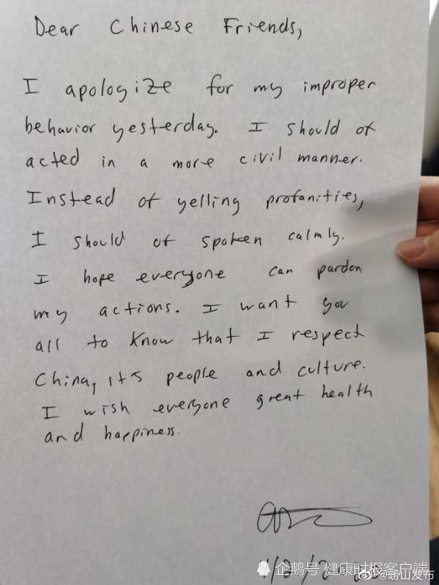 Dear Chinese Friends,
I apologize for my improper
behavior yesterday. I should of
acted in a more civil manner.
Instead of yelling profanities,
I should of spoken calmly.
I hope everyone can pardon
my actions. I want you
all to know that I respect
China, its people and culture.
I wish everyone great health
and happiness.
企鹅号 健康时报客户端
@崂山发布